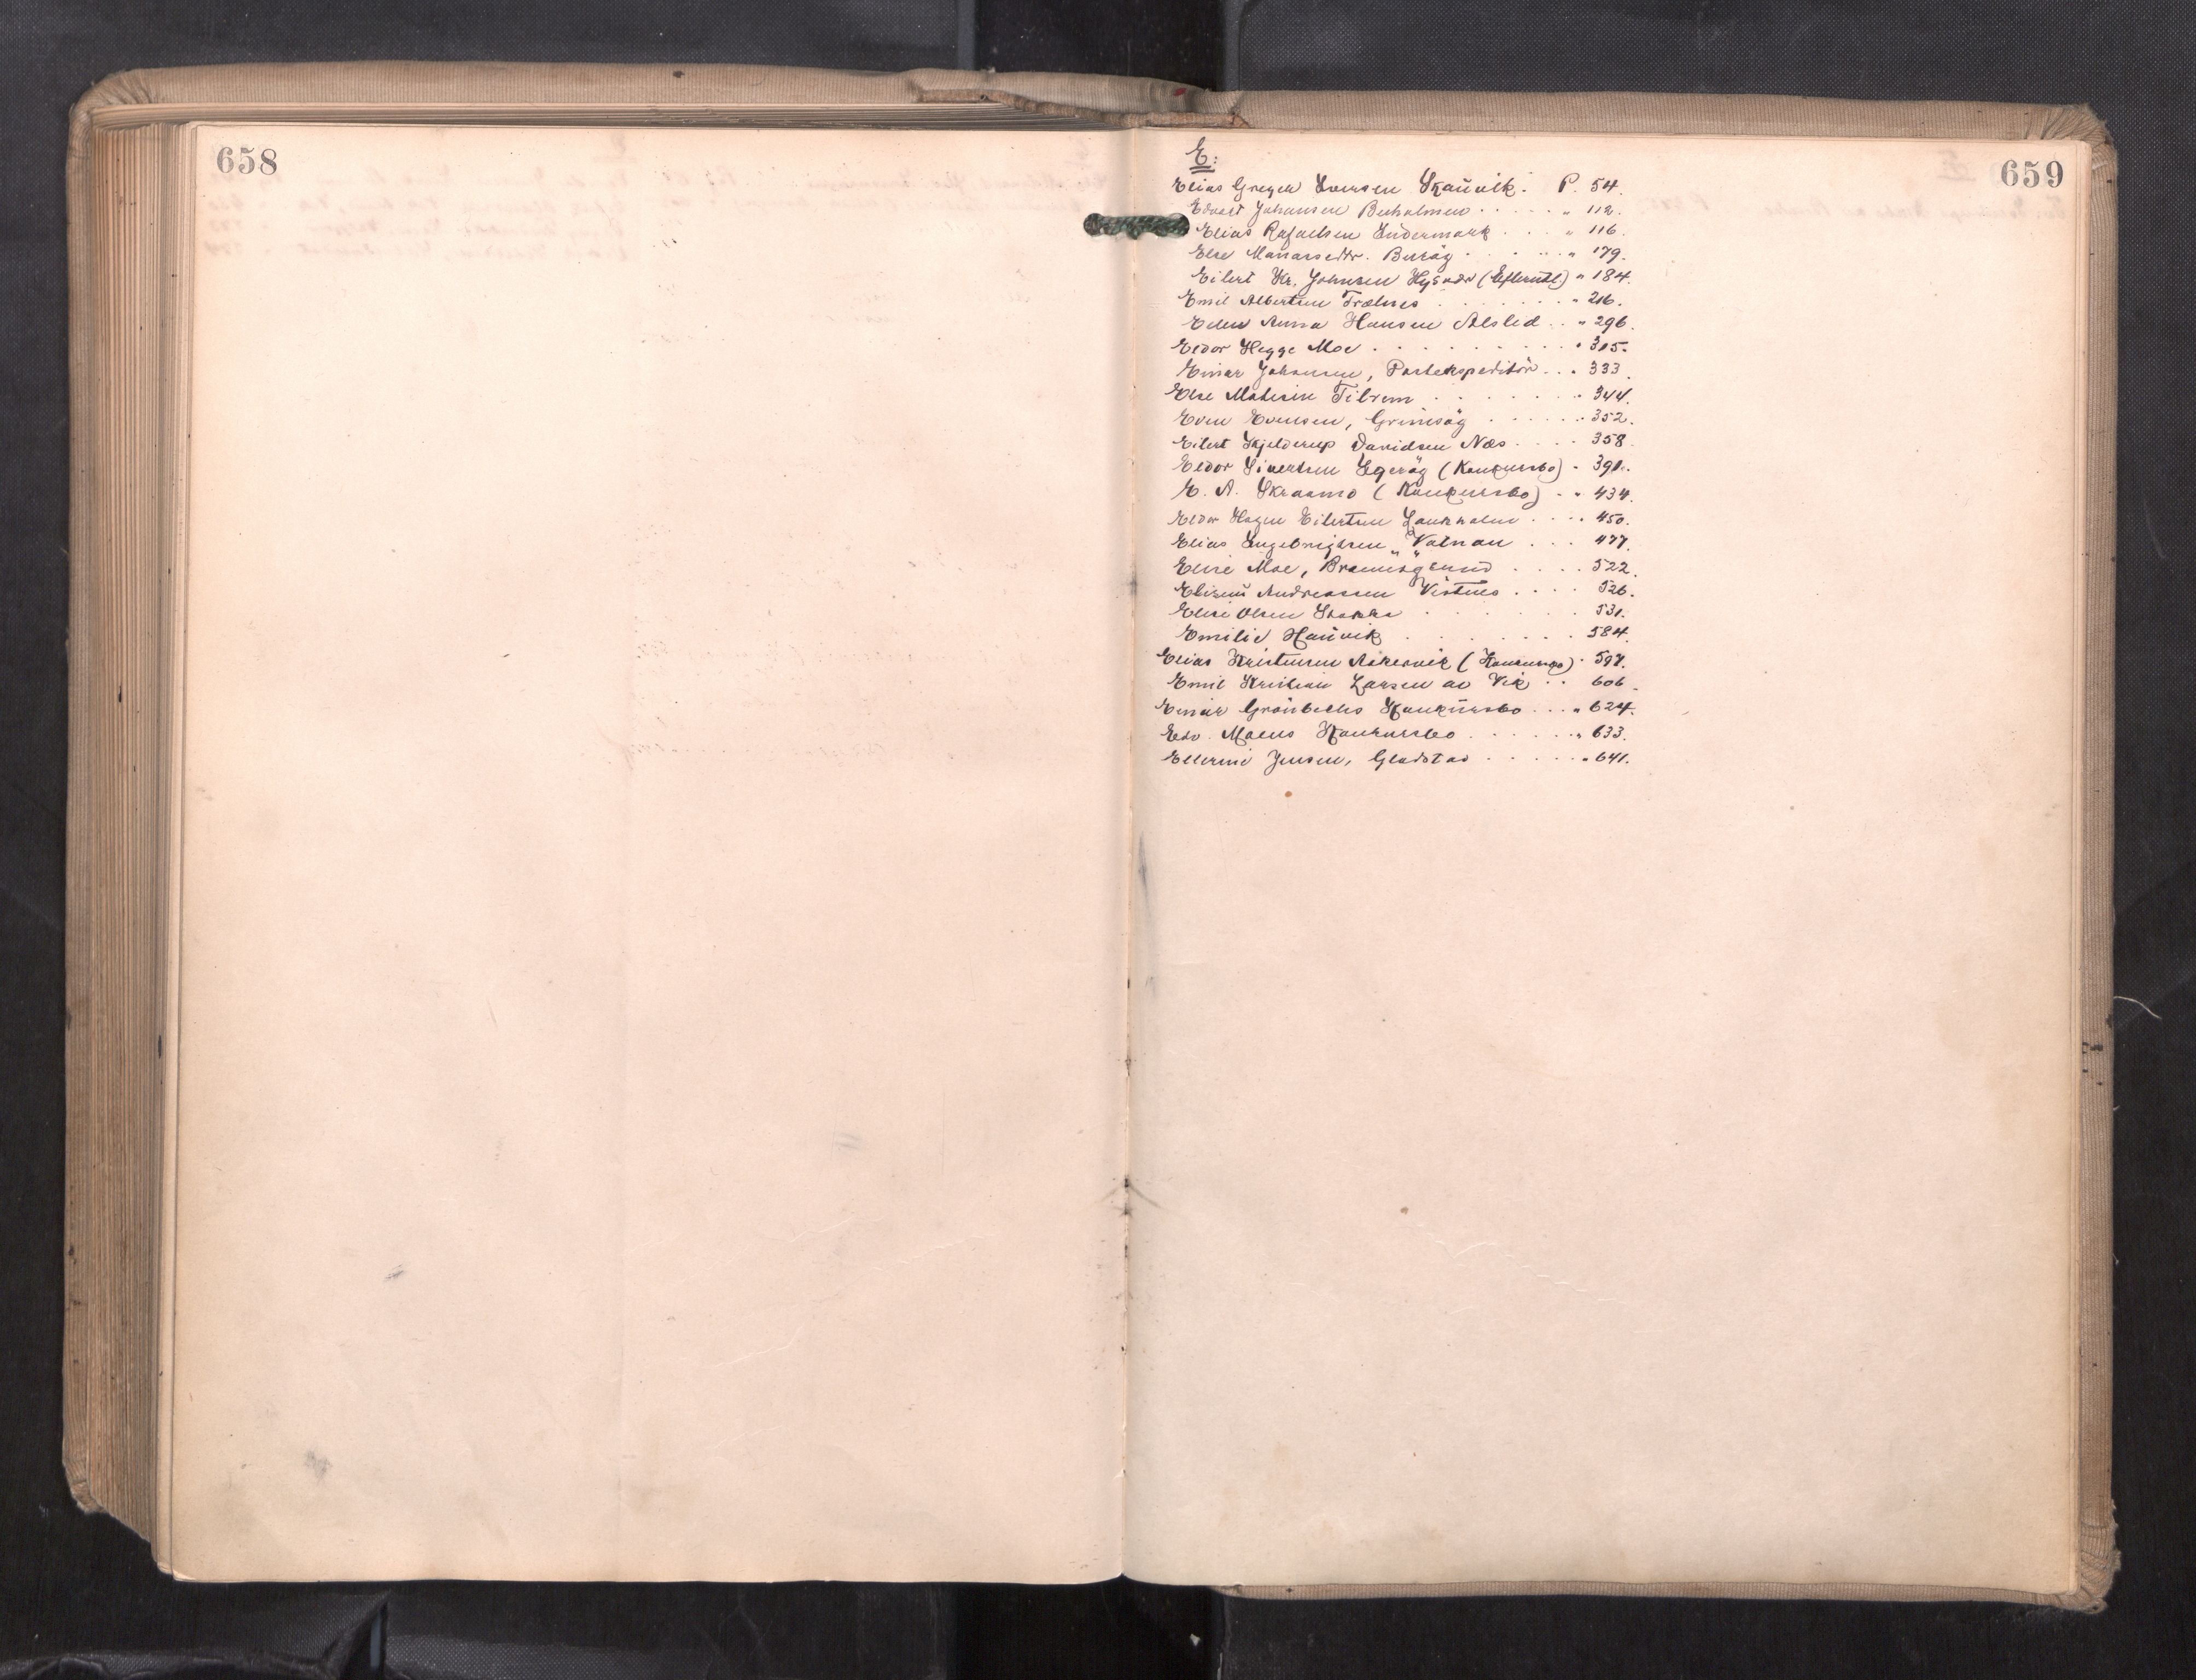 658
659
E:
Elias Greger Iversen Skauvik. P. 54.
Edvart Johansen Buholmen .... " 112.
Elias Rafaelsen Sudermark ... " 116.
Else Manassedtr. Buröy .... " 179.
Eilert Kr. Johnsen (Efterutl) " 184.
Emil Albertsen Trælnes .... " 216.
Anna Hansen Alsled .. " 296.
Eidor Hegge Moe .... " 315.
Einar Johansen, Postekspeditör ... 333.
Else Tilrem .... " 344.
Even Evensen, .... 352.
Eilert Kjelderup Davidsen Næs .... 358
Eidor Sivertsen (Konkursbo) . 391.
E. A. Skraamo (Konkursbo) . " 434.
Eidor Hagen Eilertsen .... 450.
Elias Ingebrigtsen "Vatnan" ... 477.
Elise Moe, Brønnøysund .... 522.
Andreassen Vistnes .... 526.
Elise Olsen .... 531.
Emilie Hauvik .... 584.
Elias Kristensen (Konkursbo) . 597.
Emil Kristian Larsen av Vik .. 606.
Einar Grönbechs Konkursbo ... " 624.
Edv. Moens Konkursbo .... " 633.
Ellerine Jensen, Gladstad .... " 641.